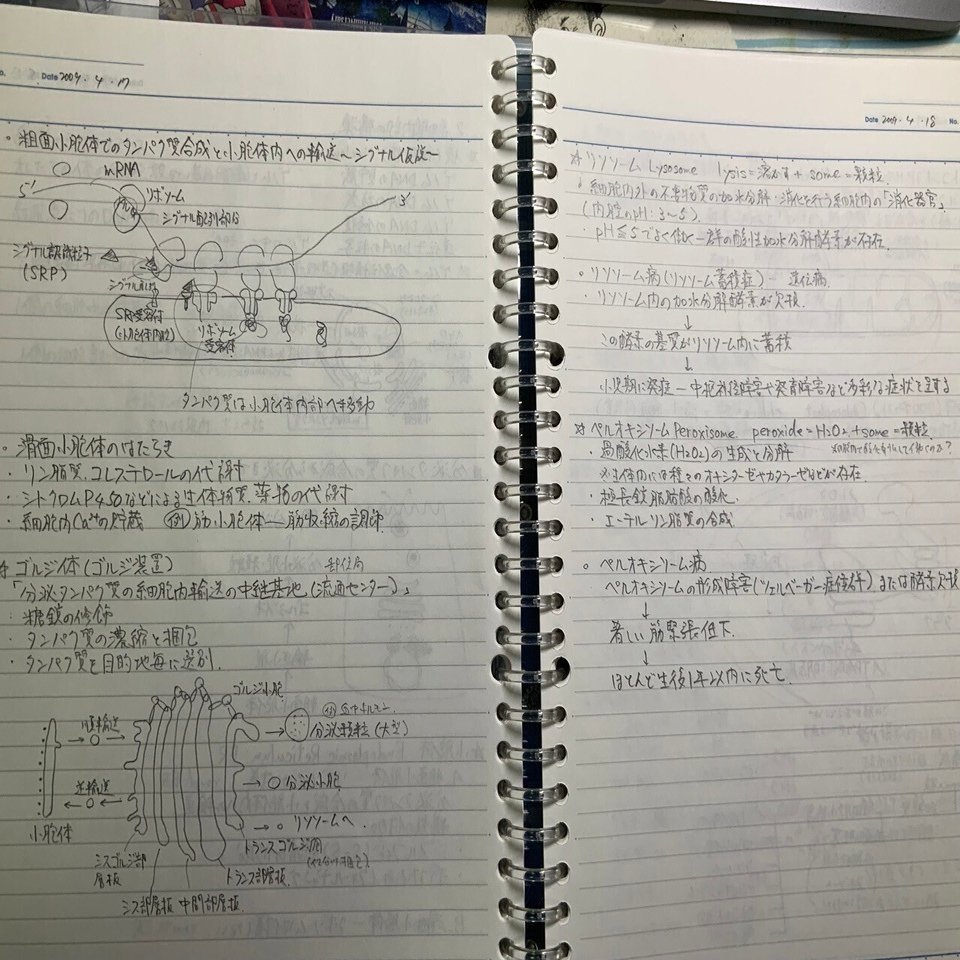 No. Date 2009・4・17
・粗面小胞体でのタンパク質合成と小胞体内への輸送〜シグナル仮説〜
mRNA
5'
3'
リボソーム
シグナル配列部分
シグナル認識粒子
(SRP)
シグナル配列
SRP受容体
(小胞体内膜)
リボソーム
受容体
タンパク質は小胞体内部へ移動
・滑面小胞体のはたらき
・リン脂質、コレステロールの代謝
・シトクロムP450などによる生体物質、薬物の代謝
・細胞内Ca²⁺の貯蔵 例)筋小胞体―筋収縮の調節
☆ゴルジ体(ゴルジ装置) 郵便局
「分泌タンパク質の細胞内輸送の中継基地(流通センター)」
・糖鎖の修飾
・タンパク質の濃縮と梱包
・タンパク質を目的地毎に選別
ゴルジ小胞
順輸送
逆輸送
小胞体
分泌顆粒(大型)
分泌小胞
リソソームへ
トランスゴルジ網
シスゴルジ部
層板
トランス部層板
シス部層板 中間部層板
Date 2009・4・18 No.
☆リソソーム Lysosome lysis=溶かす + some=顆粒
・細胞内外の不要物質の加水分解・消化を行う細胞内の「消化器官」
(内腔のpH:3〜5)
・pH≦5でよく働く一群の酸性加水分解酵素が存在
・リソソーム病(リソソーム蓄積症) 遺伝病
・リソソーム内の加水分解酵素が欠損
↓
この酵素の基質がリソソーム内に蓄積
↓
小児期に発症―中枢神経障害や発育障害など多彩な症状を呈する
☆ペルオキシソーム Peroxisome peroxide=H₂O₂+some=顆粒
・過酸化水素(H₂O₂)の生成と分解
※主体内には種々のオキシダーゼやカタラーゼなどが存在
・極長鎖脂肪酸の酸化
・エーテルリン脂質の合成
・ペルオキシソーム病
ペルオキシソームの形成障害(ツェルベーガー症候群)または酵素欠損
↓
著しい筋緊張低下
↓
ほとんど生後1年以内に死亡